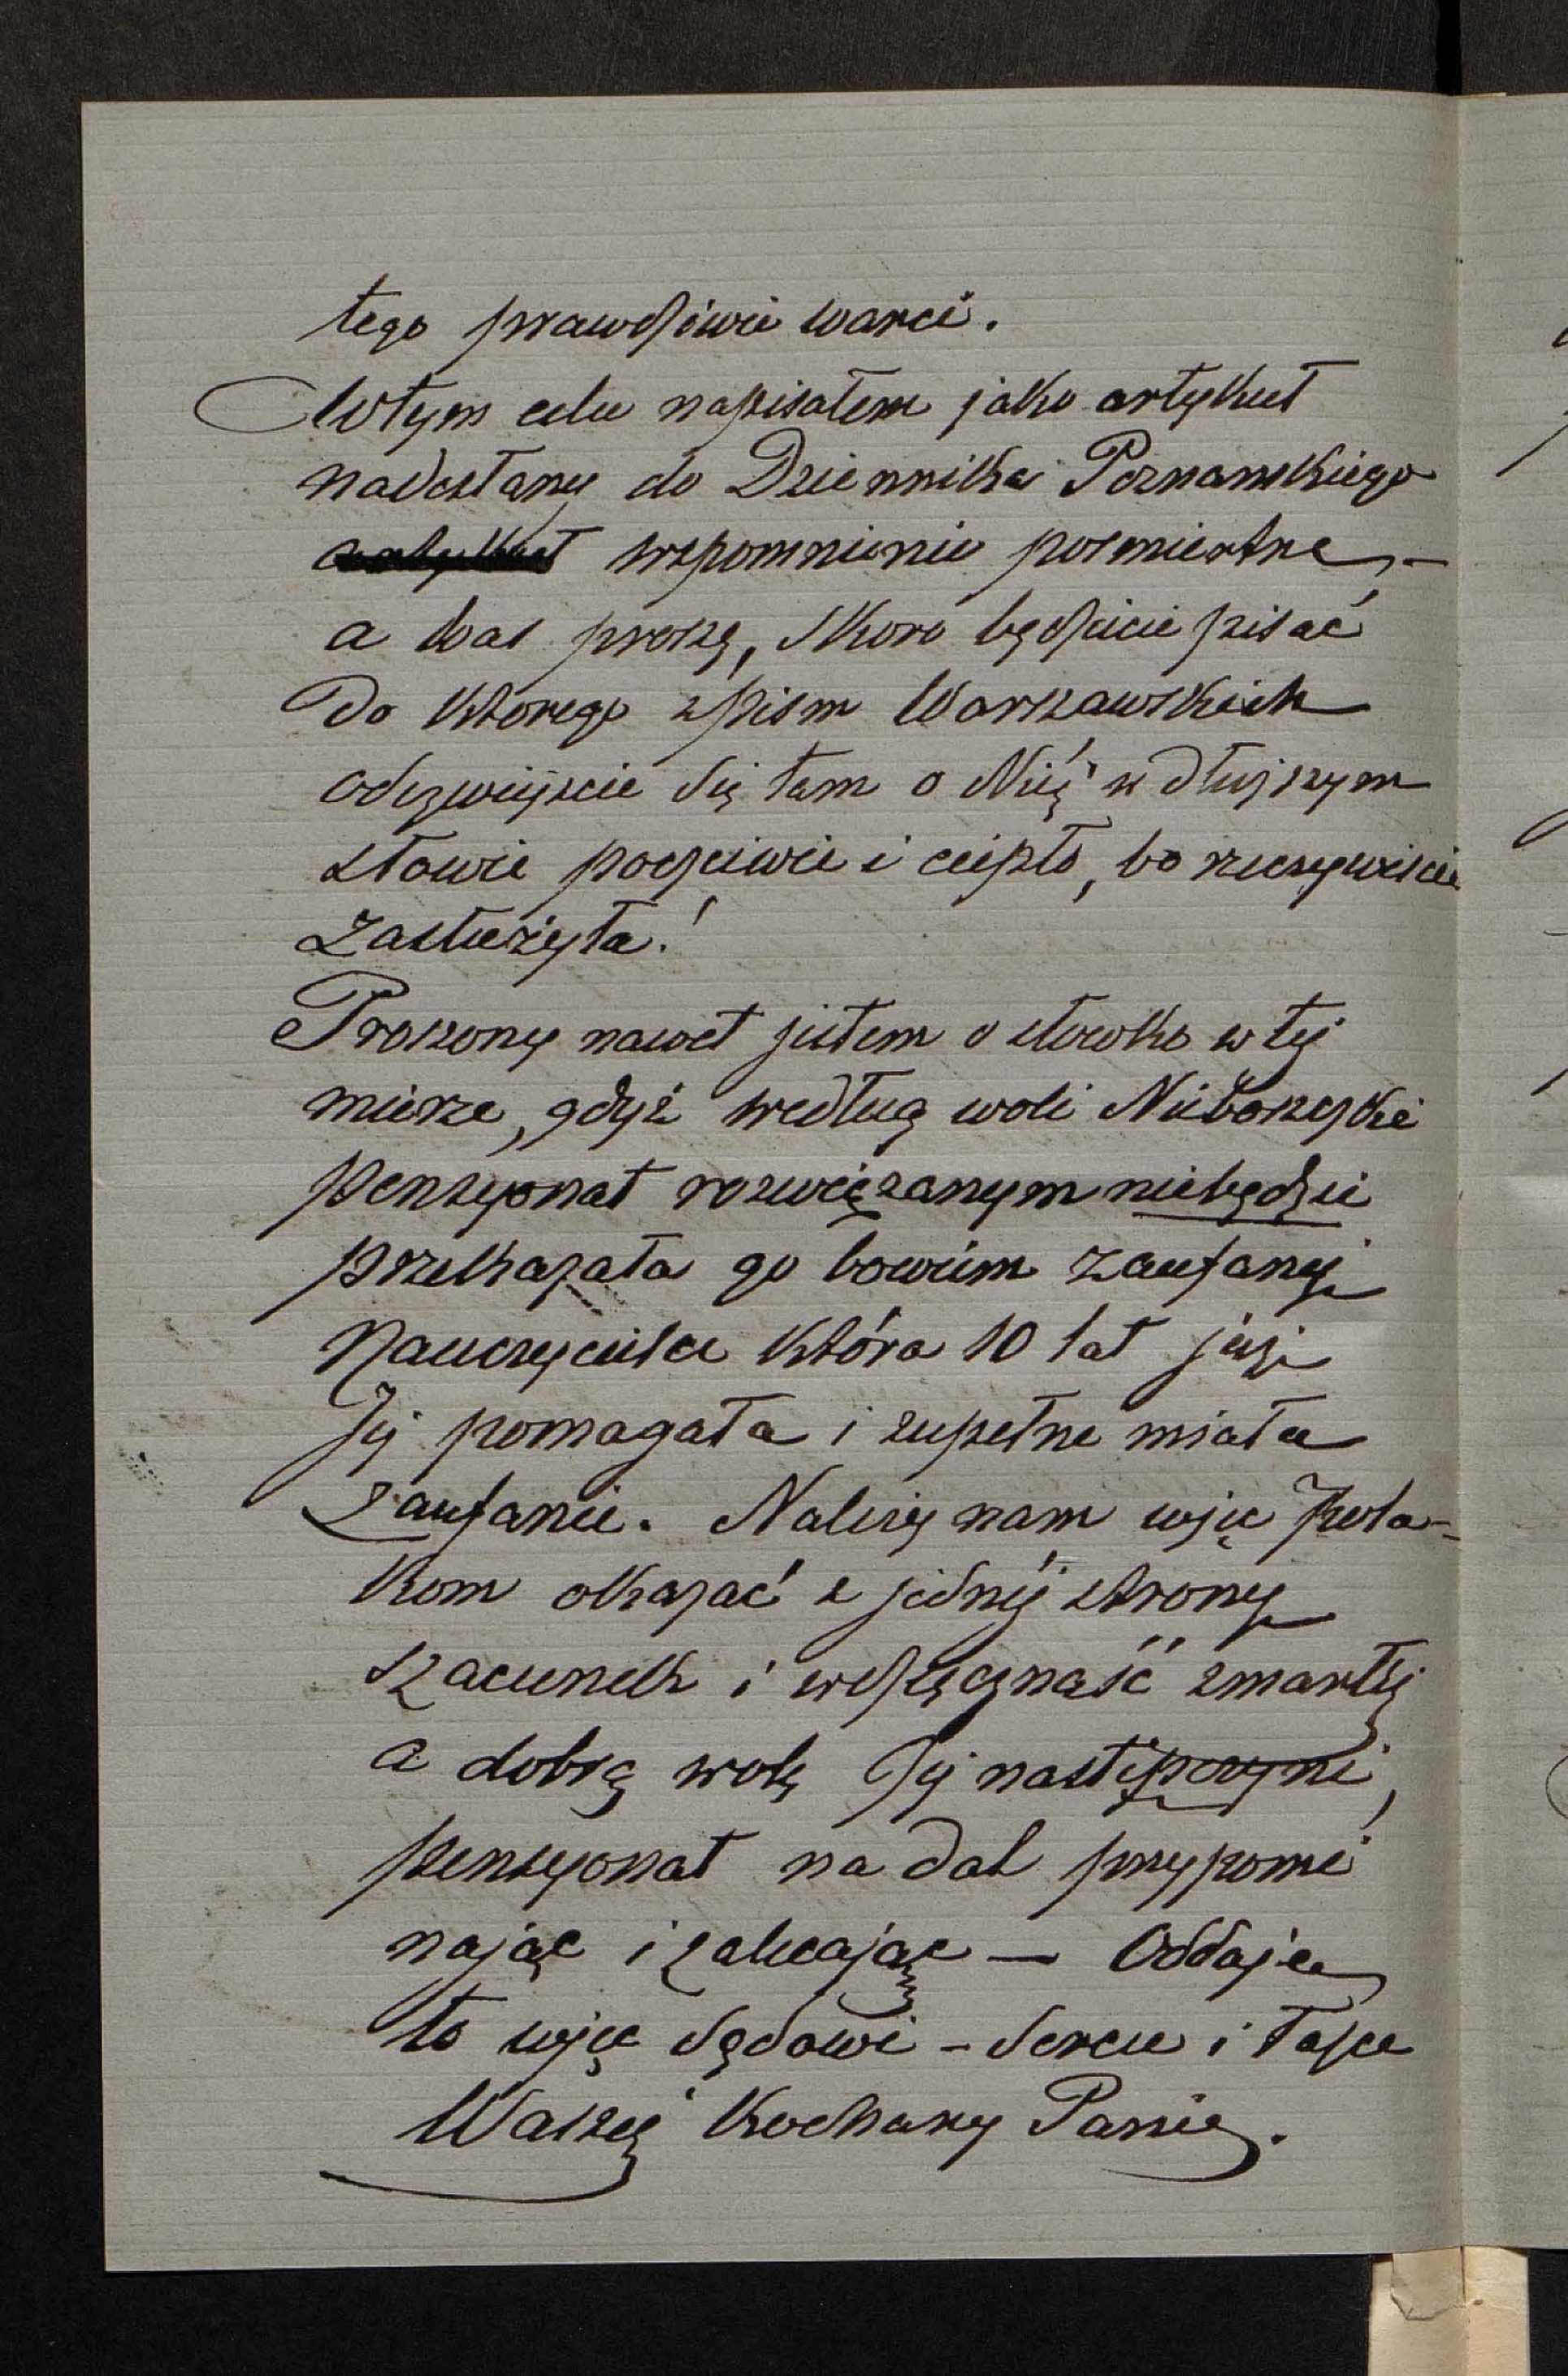 tego prawdziwie warci.
W tym celu napisałem jako artykuł
nadesłany do Dziennika Poznańskiego
artykuł wspomnienie pośmiertne, —
a Was proszę, skoro będziecie pisać
do którego z pism Warszawskich
odezwijcie się tam o Niéj w dłuższym
słowie poczciwie i ciepło, bo rzeczywiście
zasłużyła!
Proszony nawet jestem o słówko w tej
mierze, gdyż według woli Nieboszczki
pensyonat rozwiązanym niebędzie
przekazała go bowiem zaufanej
Nauczycielce która 10 lat już
Jej pomagała i zupełne miała
zaufanie. Należy nam więc Pola-
kom okazać z jednéj strony
szacunek i wdzięczność zmarłej
a dobrą wolę Jej następczyni,
pensyonat na dal przypomi
nając i zalecając — Oddaję
to więc sądowi - sercu i łasce
Waszéj Kochany Panie.